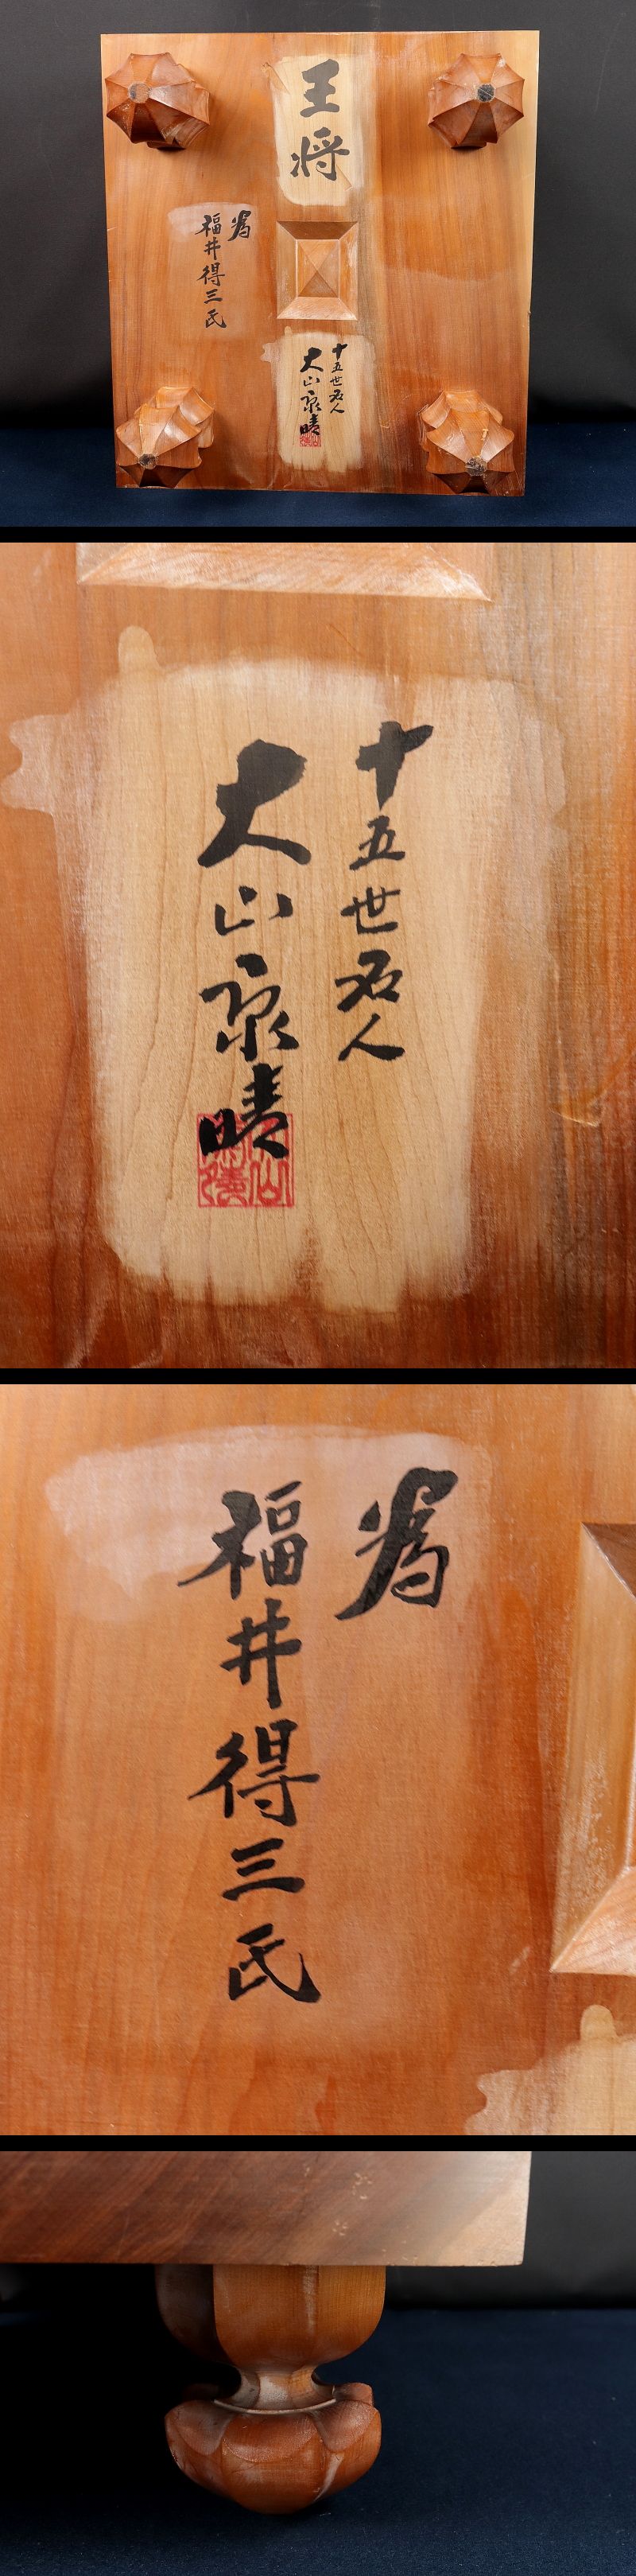 王将
為
福井得三氏
十五世名人
大山康晴
十五世名人
大山康晴
為
福井得三氏